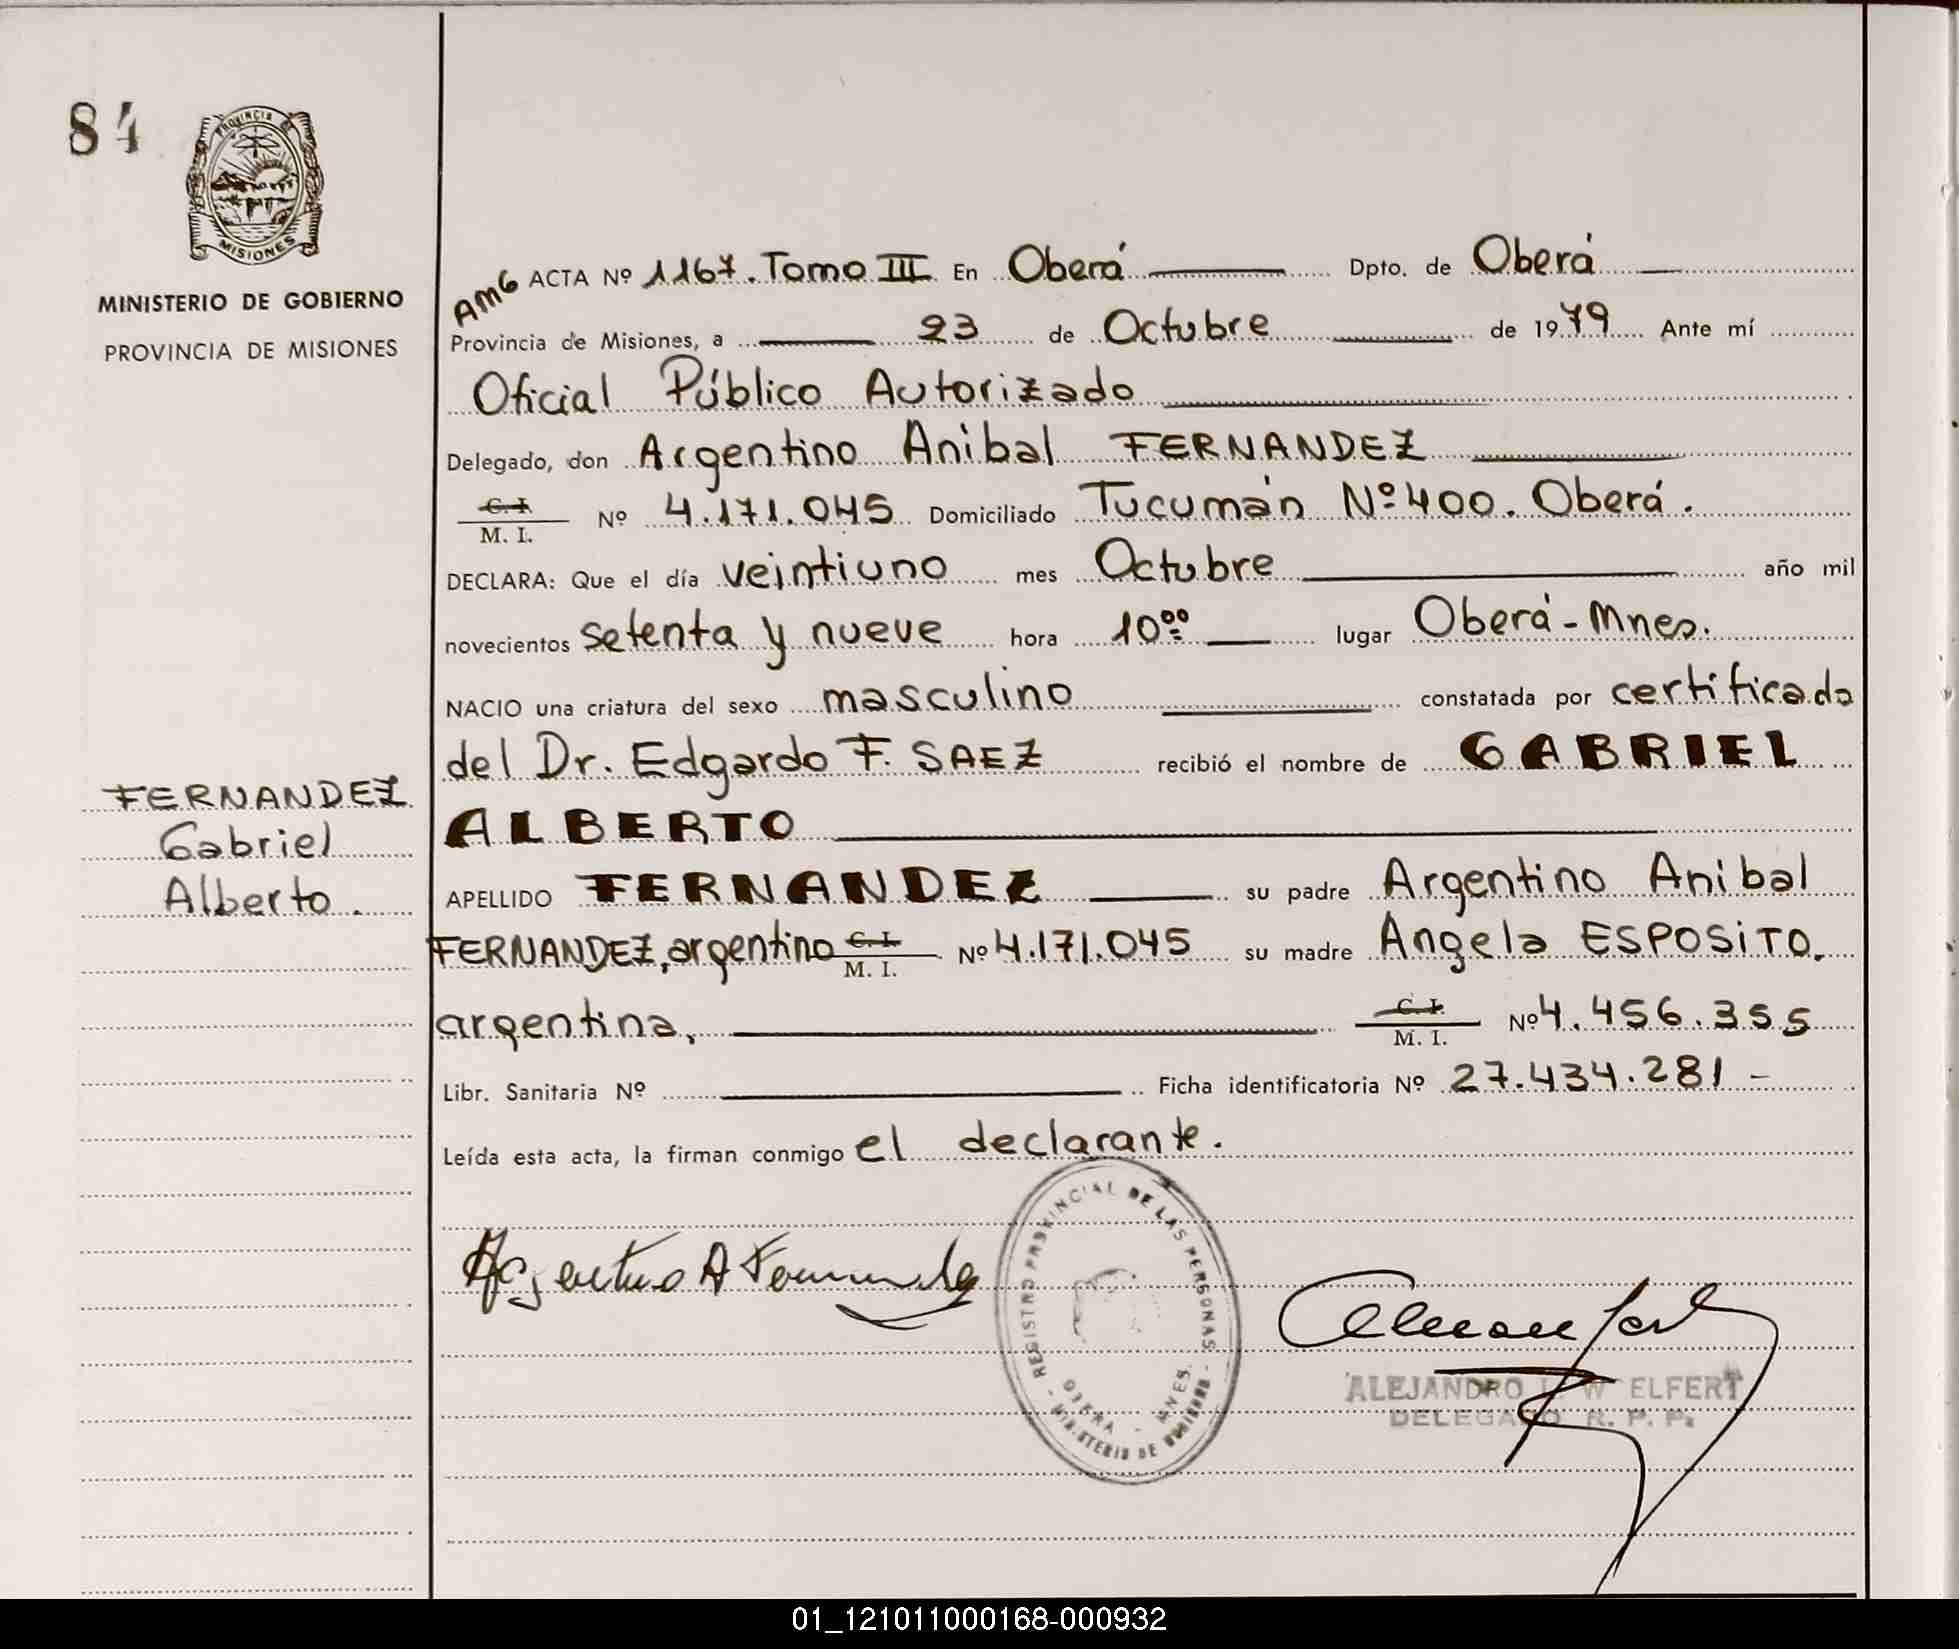 84
PROVINCIA DE
MISIONES
MINISTERIO DE GOBIERNO
PROVINCIA DE MISIONES
FERNANDEZ
Gabriel
Alberto.
AMG ACTA Nº 1167. Tomo III En Oberá Dpto. de Oberá
Provincia de Misiones, a 23 de Octubre de 1979 Ante mí
Oficial Público Autorizado
Delegado, don Argentino Anibal FERNANDEZ
C. I. M. I. Nº 4.171.045 Domiciliado Tucumán Nº 400. Oberá.
DECLARA: Que el día veintiuno mes Octubre año mil
novecientos setenta y nueve hora 10⁰⁰ lugar Oberá-Mnes.
NACIO una criatura del sexo masculino constatada por certificado
del Dr. Edgardo F. SAEZ recibió el nombre de GABRIEL
ALBERTO
APELLIDO FERNANDEZ su padre Argentino Anibal
FERNANDEZ, argentino C. I. M. I. Nº 4.171.045 su madre Angela ESPOSITO,
argentina, C. I. M. I. Nº 4.456.355
Libr. Sanitaria Nº Ficha identificatoria Nº 27.434.281 -
Leída esta acta, la firman conmigo el declarante.
Argentino A Fernandez
REGISTRO PROVINCIAL DE LAS PERSONAS
OBERA - MNES.
MINISTERIO DE GOBIERNO
ALEJANDRO W ELFERT
DELEGADO R. P. P.
01_121011000168-000932